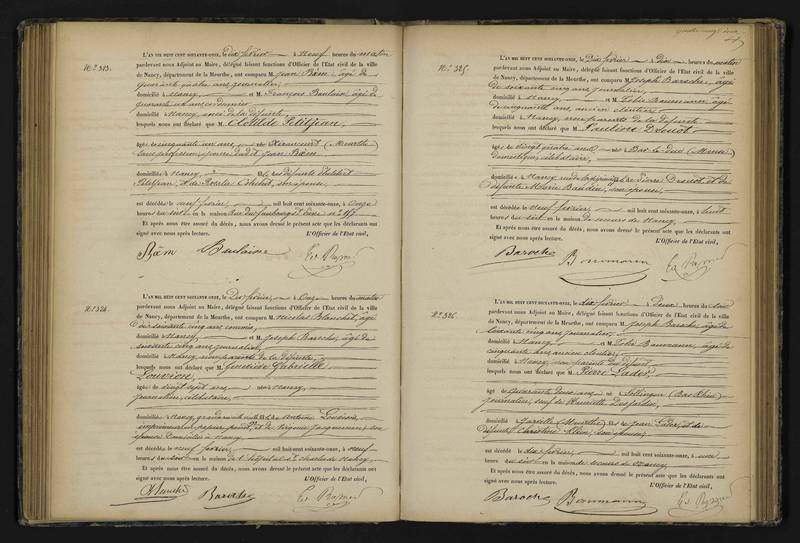 N.° 323.
L'AN MIL HUIT CENT SOIXANTE-ONZE, le dix février à neuf heures du matin
pardevant nous Adjoint au Maire, délégué faisant fonctions d'Officier de l'Etat civil de la ville
de Nancy, département de la Meurthe, ont comparu M. Jean Bâm, âgé de
quarante quatre ans, journalier,
domicilié à Nancy, et M. François Baulaire, âgé de
quarante
domicilié à Nancy, de la défunte,
lesquels nous ont déclaré que M. Clotilde Petitjean,
âgée de cinquante un ans, née à (Meurthe)
sans profession, épouse dudit Jean Bâm,
domiciliée à Nancy, fille de défunts Hubert
Petitjean, et de Rosalie son épouse,
est décédée le neuf février, mil huit cent soixante-onze, à onze
heures du soir en la maison rue du faubourg St
Et après nous être assuré du décès, nous avons dressé le présent acte que les déclarants ont
signé avec nous après lecture. L'Officier de l'Etat civil,
Bâm Baulaire
N.° 324.
L'AN MIL HUIT CENT SOIXANTE-ONZE, le dix février, à onze heures du matin
pardevant nous Adjoint au Maire, délégué faisant fonctions d'Officier de l'Etat civil de la ville
de Nancy, département de la Meurthe, ont comparu M. Nicolas Blanchet, âgé
de soixante cinq ans, commis,
domicilié à Nancy, et M. Joseph Baroche, âgé de
soixante cinq ans, journalier,
domicilié à Nancy, non parents de la défunte,
lesquels nous ont déclaré que M. Geneviève Gabrielle
Louvion,
âgée de vingt sept ans, née à Nancy,
journalière, célibataire,
domiciliée à Nancy, fille de Antoine Louvion,
imprimeur en papier peint, et de Virginie son
épouse domiciliés à Nancy
est décédée le neuf février, mil huit cent soixante-onze, à neuf
heures du soir en la maison de l'hôpital St Charles de Nancy
Et après nous être assuré du décès, nous avons dressé le présent acte que les déclarants ont
signé avec nous après lecture. L'Officier de l'Etat civil,
Baroche
N.° 325.
L'AN MIL HUIT CENT SOIXANTE-ONZE, le dix février, à dix heures du matin
pardevant nous Adjoint au Maire, délégué faisant fonctions d'Officier de l'Etat civil de la ville
de Nancy, département de la Meurthe, ont comparu M. Joseph Baroche, âgé
de soixante cinq ans, journalier,
domicilié à Nancy et M. Tobie Baumann, âgé
de cinquante ans, ancien
domicilié à Nancy, non parents de la défunte
lesquels nous ont déclaré que M. Pauline Drouot
âgée de vingt quatre ans née à Bar-le-duc (Meuse)
domestique, célibataire,
domiciliée à Nancy de Pierre Drouot et de
défunte Marie son épouse,
est décédée le neuf février, mil huit cent soixante-onze, à huit
heures du soir en la maison de secours de Nancy,
Et après nous être assuré du décès, nous avons dressé le présent acte que les déclarants ont
signé avec nous après lecture. L'Officier de l'Etat civil,
Baroche Baumann
N.° 326.
L'AN MIL HUIT CENT SOIXANTE-ONZE, le dix février à deux heures du soir
pardevant nous Adjoint au Maire, délégué faisant fonctions d'Officier de l'Etat civil de la ville
de Nancy, département de la Meurthe, ont comparu M. Joseph Baroche, âgé de
soixante cinq ans, journalier,
domicilié à Nancy, et M. Tobie Baumann, âgé de
cinquante ans, ancien
domicilié à Nancy, non parents du défunt
lesquels nous ont déclaré que M. Pierre
âgé de quarante deux ans, né à (Bas Rhin)
journalier, veuf de
domicilié à (Meurthe) fils de Jean et de
défunte Christine Klein, son épouse,
est décédé le dix février, mil huit cent soixante-onze, à une
heure du soir en la maison de secours de Nancy
Et après nous être assuré du décès, nous avons dressé le présent acte que les déclarants ont
signé avec nous après lecture. L'Officier de l'Etat civil,
Baroche Baumann